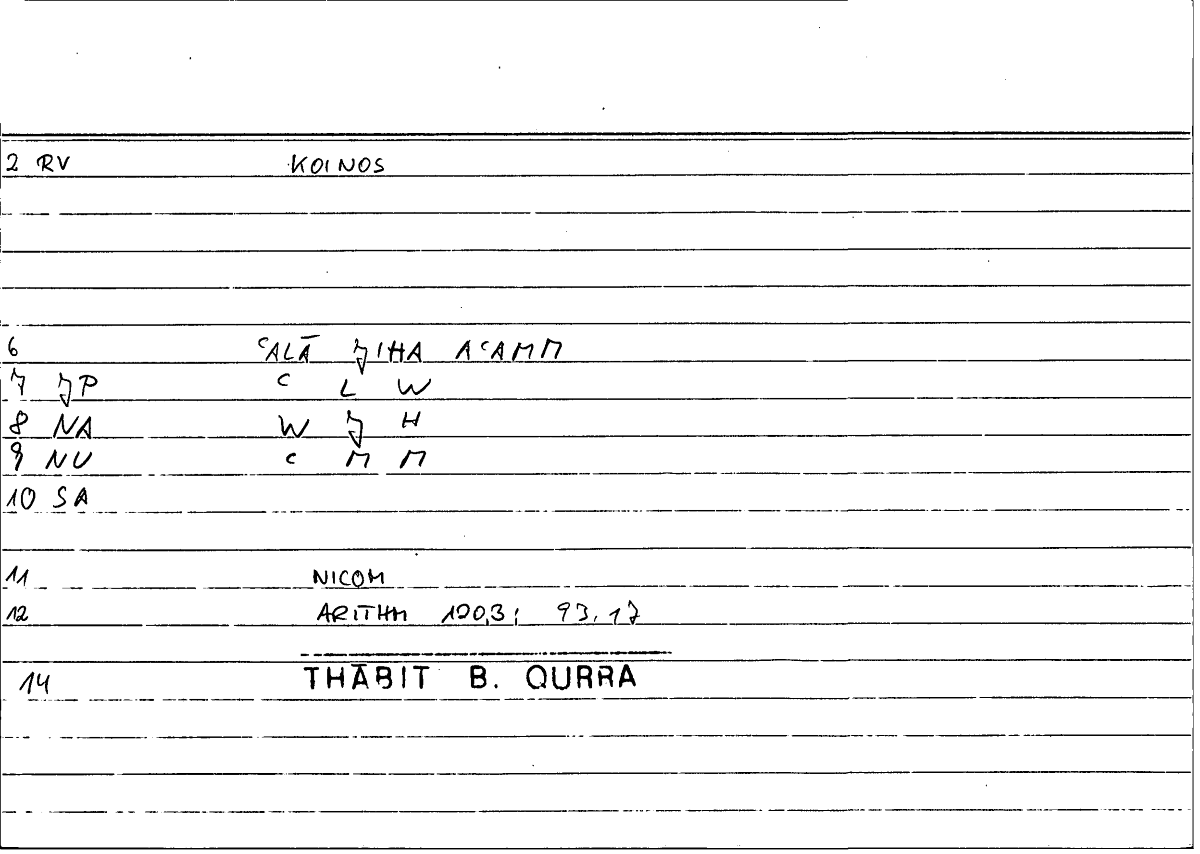 2 RV KOINOS
6 ʿALĀ ǦIHA AʿAMM
7 ǦP ʿ L W
8 NA W Ǧ H
9 NU ʿ M M
10 SA
11 NICOM
12 ARITHM 120,3; 93,17
14 THĀBIT B. QURRA